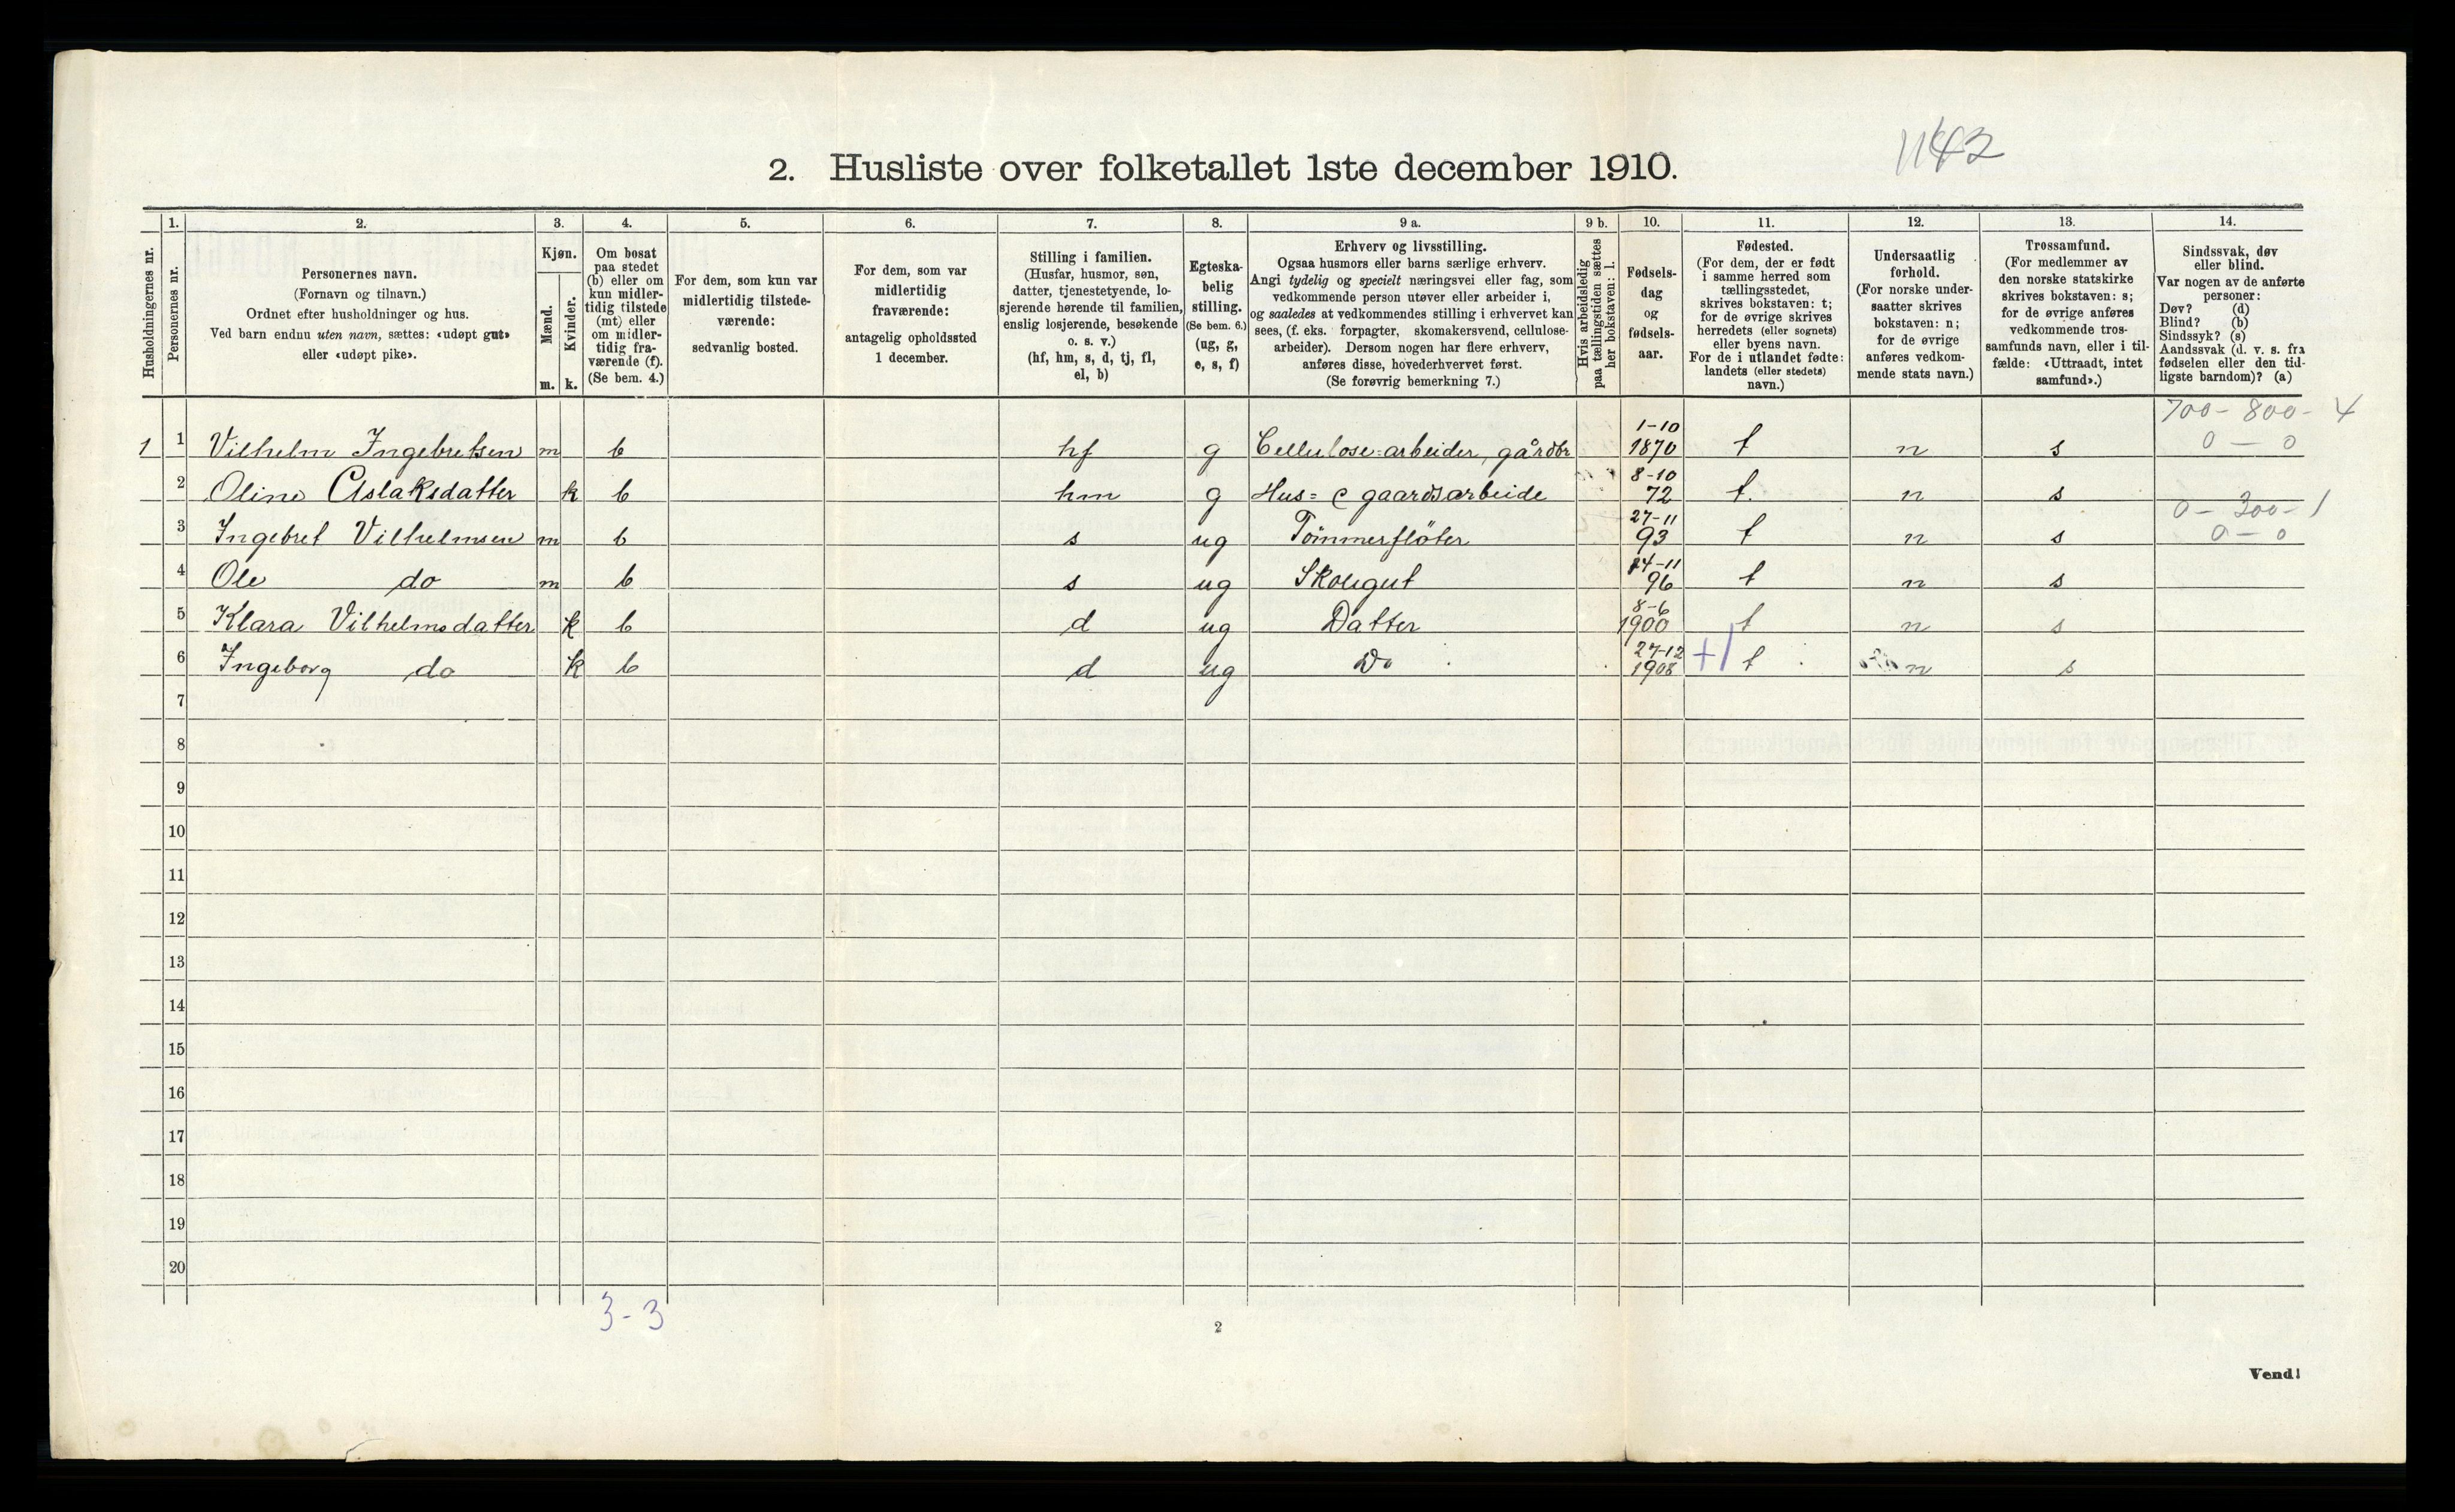 1142
2. Husliste over folketallet 1ste december 1910.
1. 2. 3. 4. 5. 6. 7. 8. 9 a. 9 b. 10. 11. 12. 13. 14.
Husholdningernes nr.
Personernes nr.
Personernes navn.
(Fornavn og tilnavn.)
Ordnet efter husholdninger og hus.
Ved barn endnu uten navn, sættes: «udøpt gut»
eller «udøpt pike».
Kjøn.
Mænd.
Kvinder.
m. k.
Om bosat
paa stedet
(b) eller om
kun midler-
tidig tilstede
(mt) eller
om midler-
tidig fra-
værende (f).
(Se bem. 4.)
For dem, som kun var
midlertidig tilstede-
værende:
sedvanlig bosted.
For dem, som var
midlertidig
fraværende:
antagelig opholdssted
1 december.
Stilling i familien.
(Husfar, husmor, søn,
datter, tjenestetyende, lo-
sjerende hørende til familien,
enslig losjerende, besøkende
o. s. v.)
(hf, hm, s, d, tj, fl,
el, b)
Egteska-
belig
stilling.
(Se bem. 6.)
(ug, g,
e, s, f)
Erhverv og livsstilling.
Ogsaa husmors eller barns særlige erhverv.
Angi tydelig og specielt næringsvei eller fag, som
vedkommende person utøver eller arbeider i,
og saaledes at vedkommendes stilling i erhvervet kan
sees, (f. eks. forpagter, skomakersvend, cellulose-
arbeider). Dersom nogen har flere erhverv,
anføres disse, hovederhvervet først.
(Se forøvrig bemerkning 7.)
Hvis arbeidsledig
paa tællingstiden sættes
her bokstaven: l.
Fødsels-
dag
og
fødsels-
aar.
Fødested.
(For dem, der er født
i samme herred som
tællingsstedet,
skrives bokstaven: t;
for de øvrige skrives
herredets (eller sognets)
eller byens navn.
For de i utlandet fødte:
landets (eller stedets)
navn.)
Undersaatlig
forhold.
(For norske under-
saatter skrives
bokstaven: n;
for de øvrige
anføres vedkom-
mende stats navn.)
Trossamfund.
(For medlemmer av
den norske statskirke
skrives bokstaven: s;
for de øvrige anføres
vedkommende tros-
samfunds navn, eller i til-
fælde: «Uttraadt, intet
samfund».)
Sindssvak, døv
eller blind.
Var nogen av de anførte
personer:
Døv? (d)
Blind? (b)
Sindssyk? (s)
Aandssvak (d. v. s. fra
fødselen eller den tid-
ligste barndom)? (a)
700- 800- 4
0 — 0
1 1 Vilhelm Ingebretsen m b hf g Cellulose=arbeider, gårdbr 1-10 1870 t n s
2 Oline Aslaksdatter k b hm g Hus= & gaardsarbeide 8-10 72 t. n s
0 - 300- 1
0 — 0
3 Ingebret Vilhelmsen m b s ug Tömmerflöter 27-11 93 t n s
4 Ole do m b s ug Skolegut 24-11 96 t n s
5 Klara Vilhelmsdatter k b d ug Datter 8-6 1900 t n s
6 Ingeborg do k b d ug Do 27-12 1908 +1 t n s
7
8
9
10
11
12
13
14
15
16
17
18
19
20
3-3
2
Vend!